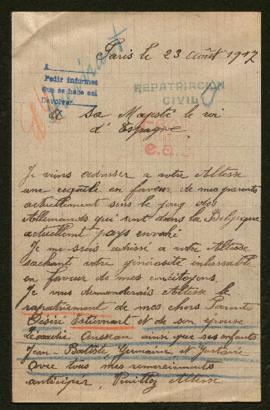 Paris le 23 Août 1917
A
Pedir informes
que se sabe así
Devolver
REPATRIACIÓN
CIVIL
A sa Majesté le roi
d'Espagne
Je viens adresser a votre Altesse
une requête en faveur de mes parents
actuellement sous le joug des
Allemands qui sont dans la Belgique
actuellement pays envahi
Je me suis adressé a votre Altesse
sachant votre générosité inlassable
en faveur de mes concitoyens.
Je vous demanderais Altesse le
rapatriement de mes chers Parents
Désiré Estievnart et de son épouse
Léocadie ainsi que ses enfants
Jean-Baptiste, Germaine et
avec tous mes remerciements
anticipés. Veuillez Altesse